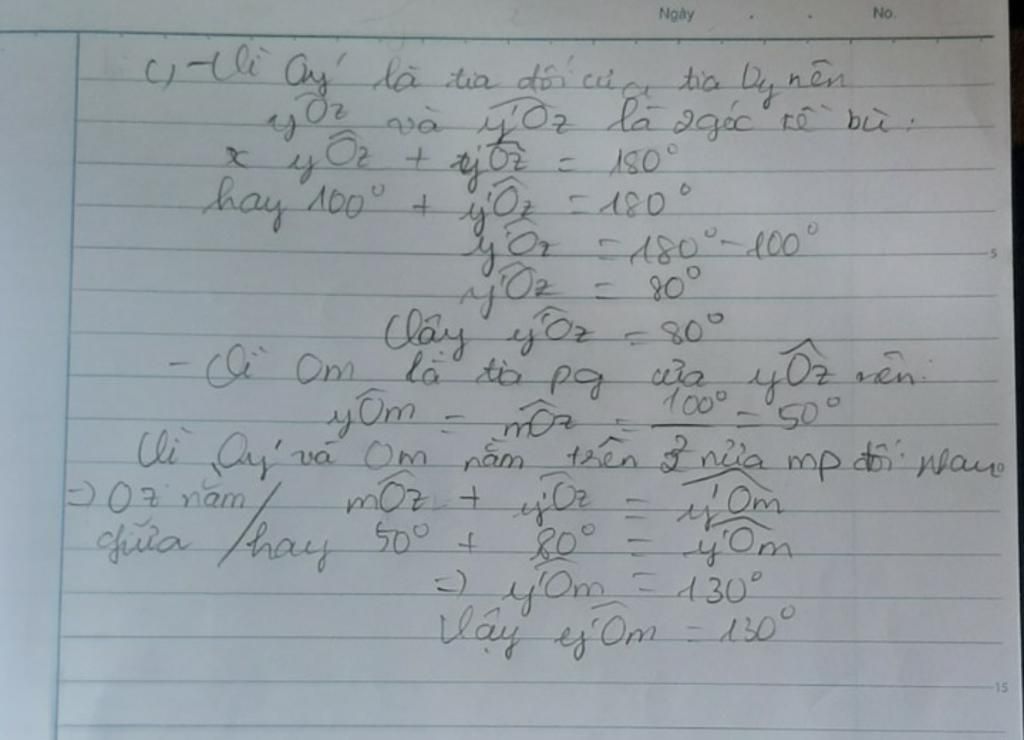 Ngày . . No.
c, - Vì Oy' là tia đối của tia Oy nên
yÔz và y'Ôz là 2 góc kề bù.
yÔz + y'Ôz = 180°
hay 100° + y'Ôz = 180°
y'Ôz = 180° - 100°
5
y'Ôz = 80°
Vậy y'Ôz = 80°
- Vì Om là tia pg của yÔz nên:
yÔm = mÔz = 100° = 50°
Vì Oy' và Om nằm trên 2 nửa mp đối nhau
=> Oz nằm / mÔz + y'Ôz = y'Ôm
giữa / hay 50° + 80° = y'Ôm
=> y'Ôm = 130°
Vậy y'Ôm = 130°
15